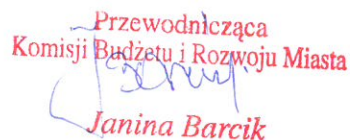 Przewodnicząca
Komisji Budżetu i Rozwoju Miasta
Janina Barcik